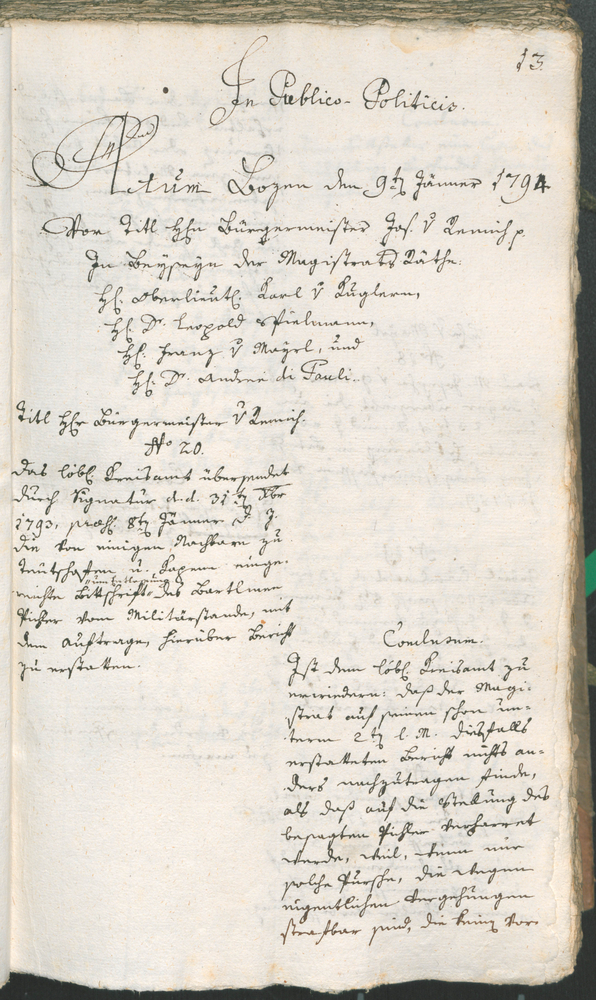 13.
In Publico-Politicis.
Actum Bozen den 9t Jänner 1794
Vor Titl Hhn Bürgermeister Jos. v Remich p
In Beyseyn der Magistrats Räthe.
HE. Oberlieut. Karl v Kuglern,
HE. Dr. Leopold Spielmann,
HE. Franz v Mayrl, und
HE. Dr. Andree di Pauli.
Titl HE Bürgermeister v Remich.
No 20.
Das löbl Kreisamt übersendet
durch Signatur d. d. 31t Xbr
1793, præs. 8t Jänner d. J.
die von einigen Nachbarn zu
Leutschaften u. Kapenn einge-
reichte Bittschrift um Entlassung des Bartlmee
Pichler vom Militärstande, mit
dem Auftrage, hierüber Bericht
zu erstatten.
Conclusum.
Ist dem löbl Kreisamt zu
erwiedern: daß der Magi-
strat auf seinen schon un-
term 2t l. M. diesfalls
erstatteten Bericht nichts an-
ders nachzutragen finde,
als daß auf die Stellung des
besagten Pichler verharret
werde, weil, wenn nur
solche Pursche, die wegen
eigentlichen Vergehungen
strafbar sind, die keine Vor-